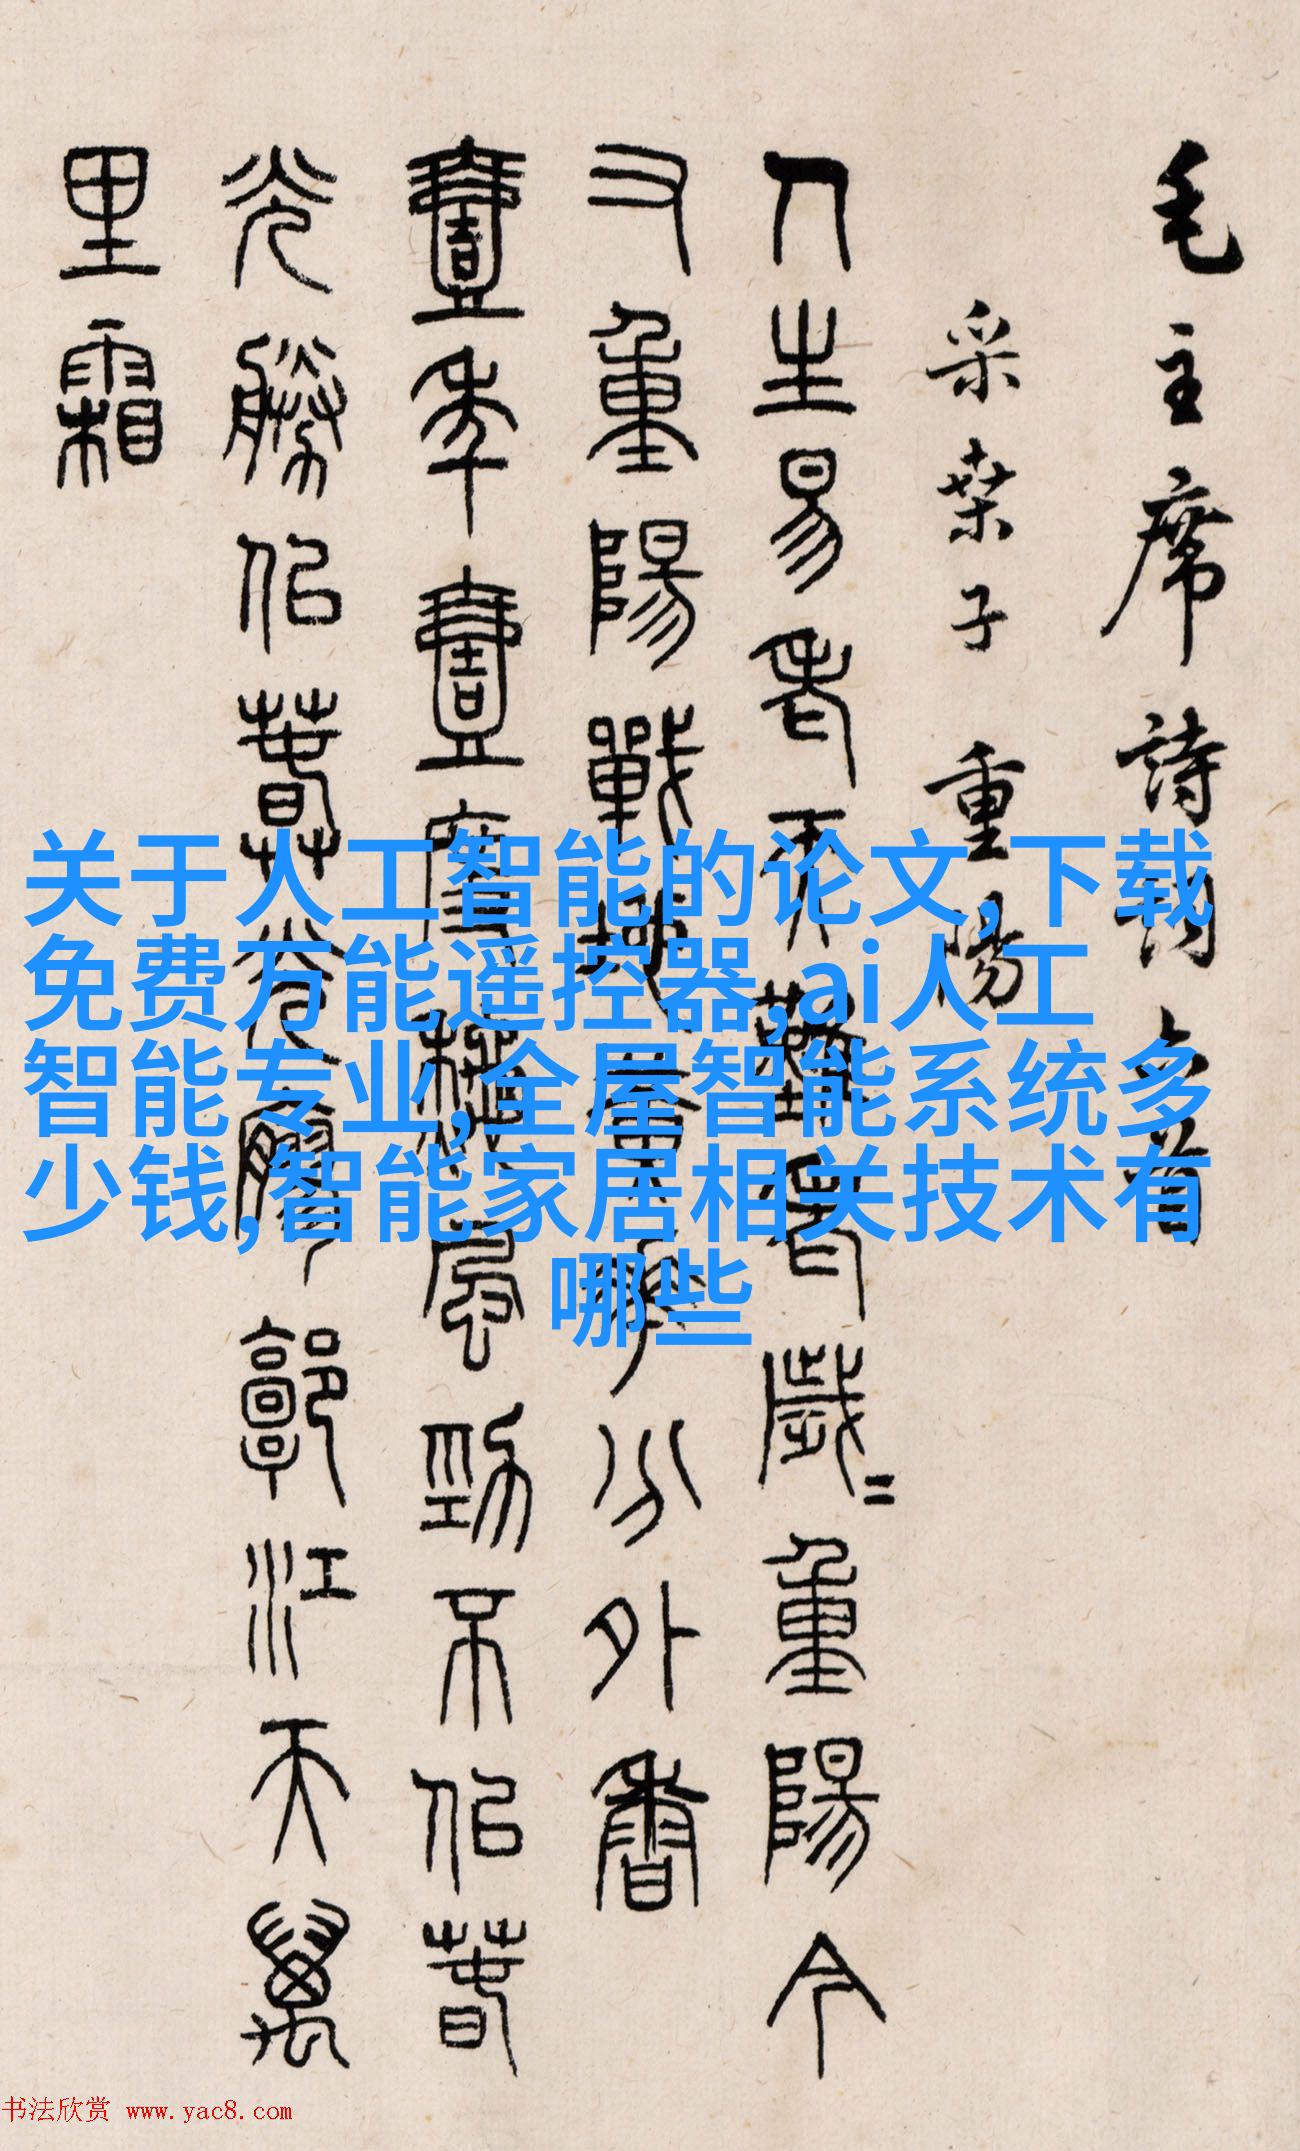 毛主席詩詞首
采桒子 重陽
人生易老天難老歲=重陽今
又重陽戰地黃花分外香
壹年壹度秋風勁不似春
光勝似春光寥郭江天萬
里霜
关于人工智能的论文,下载
免费万能遥控器,ai人工
智能专业,全屋智能系统多
少钱,智能家居相关技术有
哪些
书法欣赏 www.yac8.com